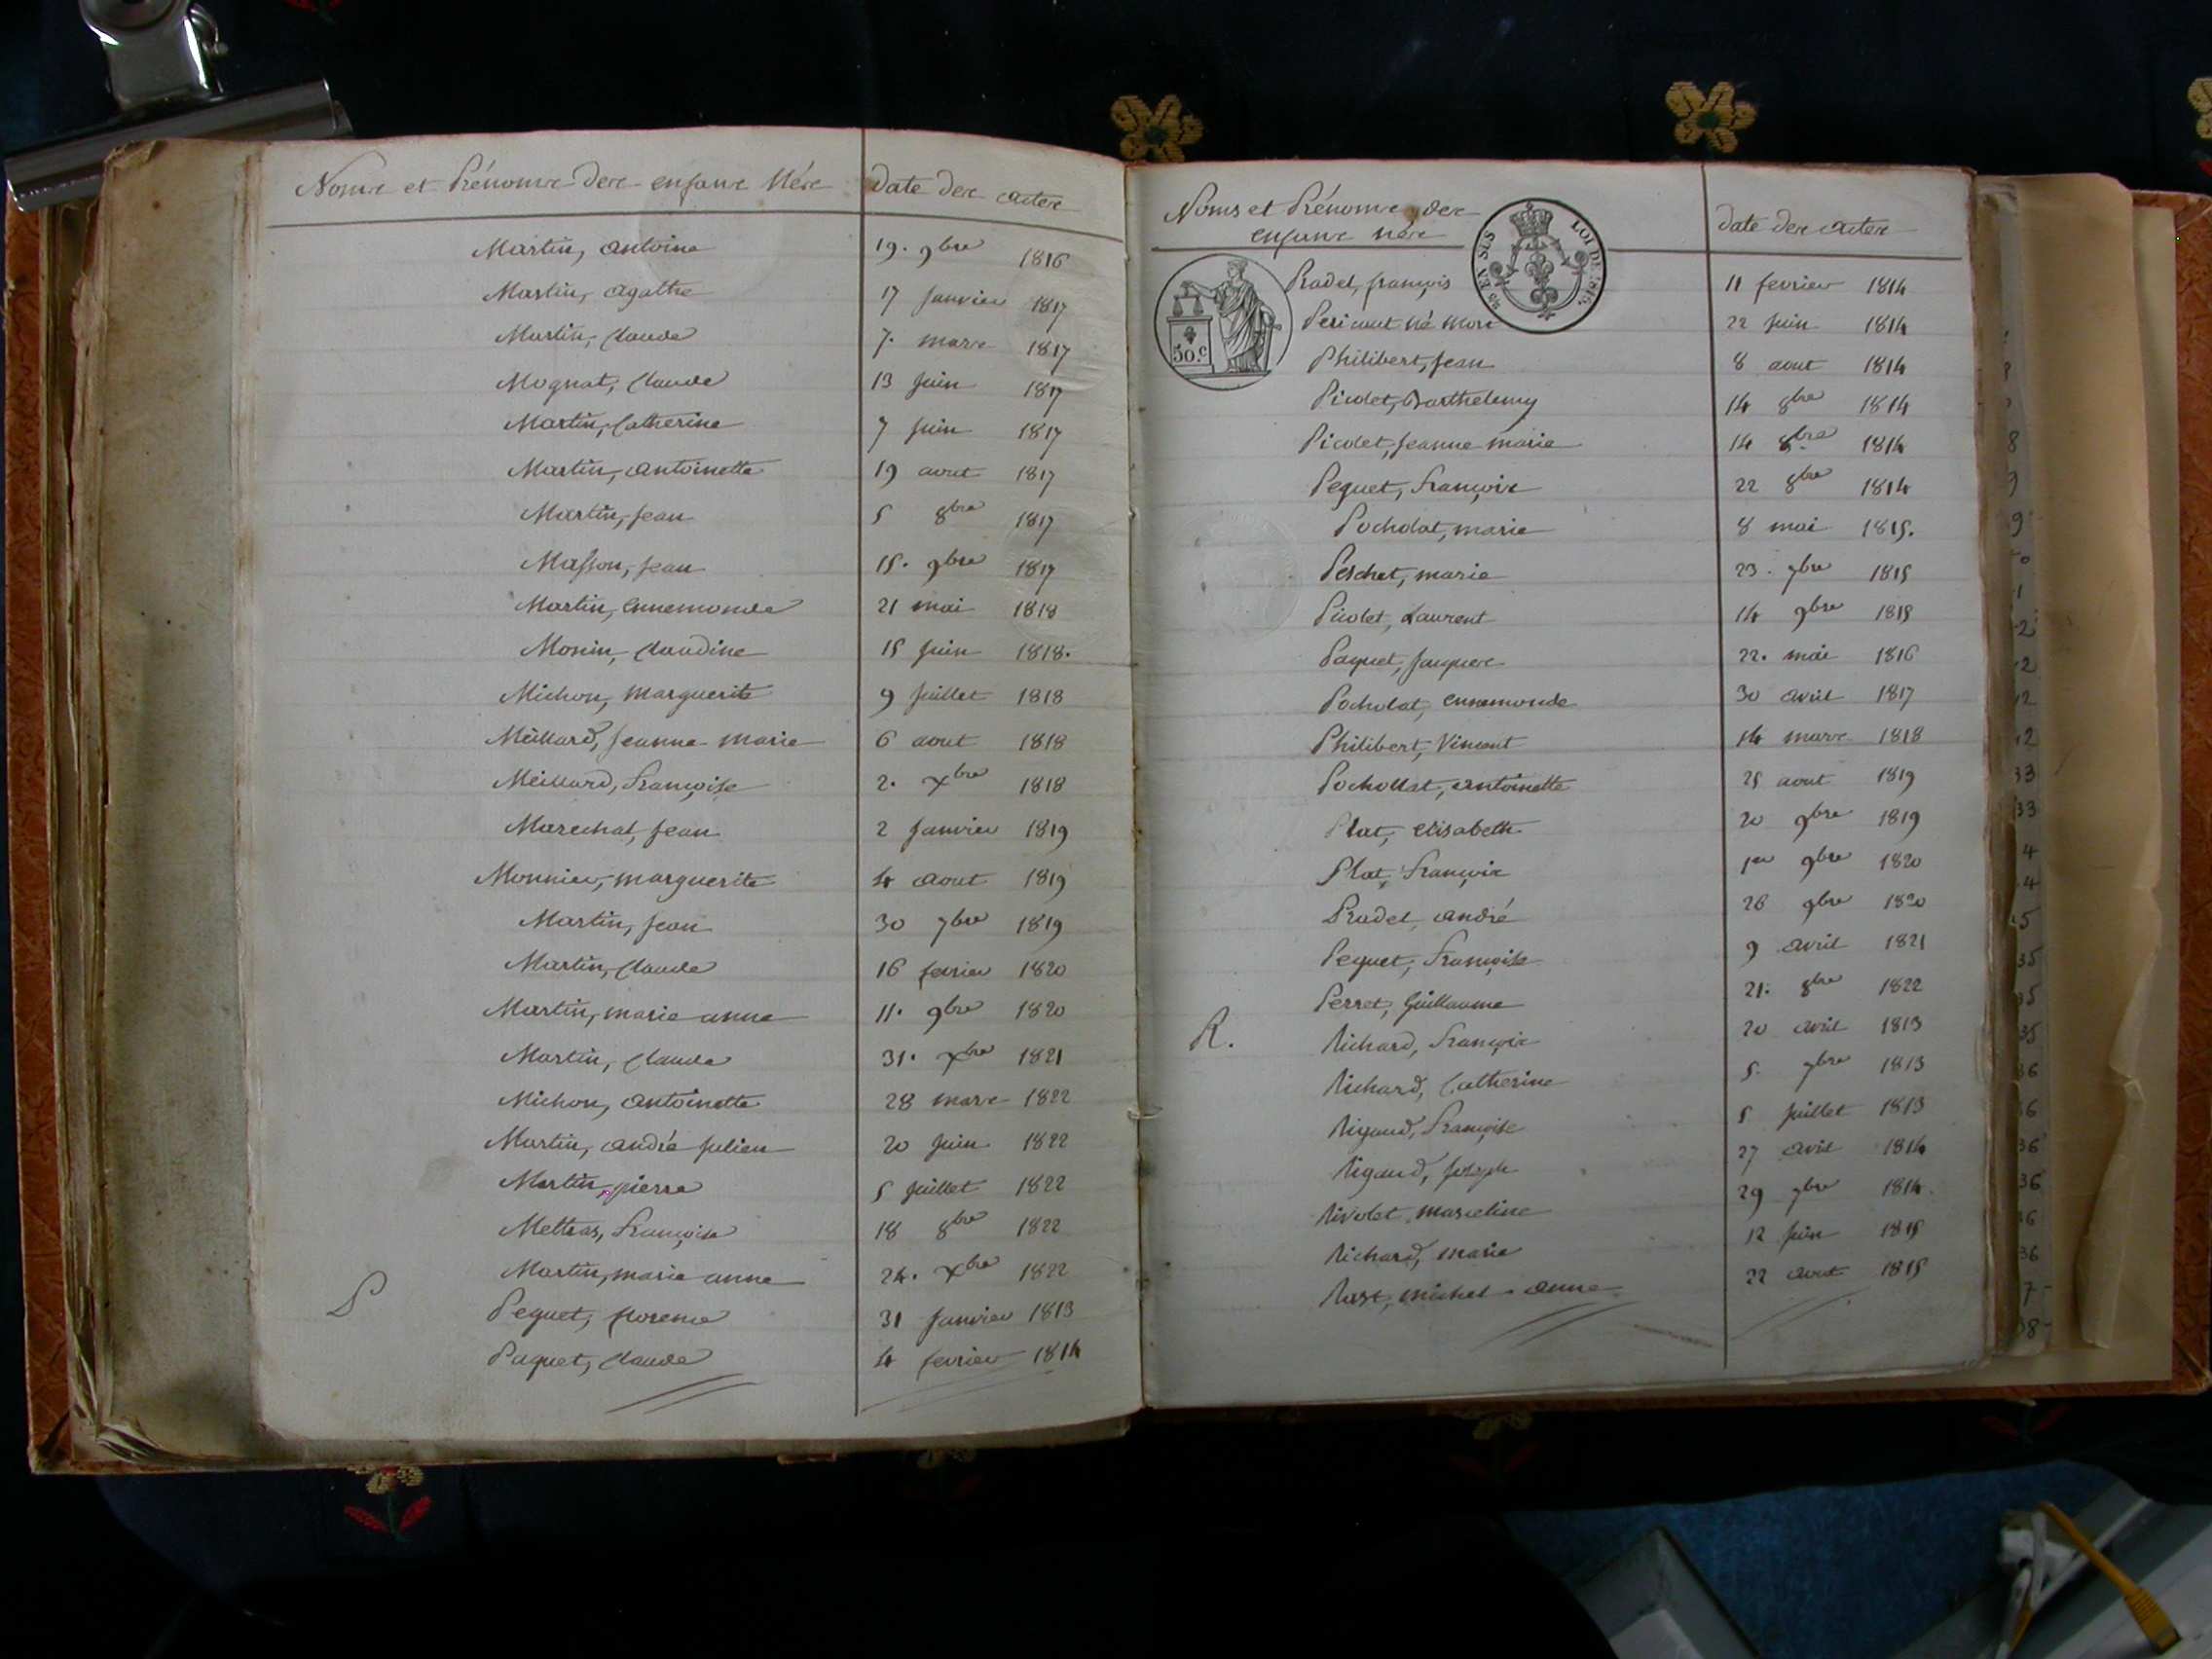 Noms et Prénoms des enfans Nés date des actes
Martin, antoine 19. 9bre 1816
Martin, agathe 17 Janvier 1817
Martin, Claude 7. mars 1817
Mognat, Claude 13 Juin 1817
Martin, Catherine 7 Juin 1817
Martin, antoinette 19 aout 1817
Martin, Jean 5 8bre 1817
Masson, Jean 15. 9bre 1817
Martin, ennemonde 21 mai 1818
Monin, Claudine 15 Juin 1818.
Michon, marguerite 9 Juillet 1818
Meillard, Jeanne marie 6 aout 1818
Meillard, Françoise 2. xbre 1818
Marechal, Jean 2 Janvier 1819
Monnier, marguerite 4 aout 1819
Martin, Jean 30 7bre 1819
Martin, Claude 16 fevrier 1820
Martin, marie anne 11. 9bre 1820
Martin, Claude 31. xbre 1821
Michon, antoinette 28 mars 1822
Martin, andré Julien 20 Juin 1822
Martin, pierre 5 Juillet 1822
Mettras, Françoise 18 8bre 1822
Martin, marie anne 24. xbre 1822
P Peguet, florence 31 Janvier 1813
Paquet, Claude 4 fevrier 1814
Noms et Prénoms des
enfans nés date des actes
EN SUS LOI DE 1816.
50.c
Pradel, françois 11 fevrier 1814
Pericaut né mort 22 Juin 1814
Philibert, Jean 8 aout 1814
Picolet, Barthelemy 14 8bre 1814
Picolet, Jeanne marie 14 8bre 1814
Peguet, François 22 8bre 1814
Pocholat, marie 8 mai 1815.
Perchet, marie 23. 7bre 1815
Picolet, Laurent 14 9bre 1815
Paquet, Jacques 22. mai 1816
Pocholat, ennemonde 30 avril 1817
Philibert, Vincent 14 mars 1818
Pochollat, antoinette 25 aout 1819
Plat, elisabeth 20 9bre 1819
Plat, François 1er 9bre 1820
Pradel, andré 26 9bre 1820
Peguet, Françoise 9 avril 1821
Perret, Guillaume 21. 8bre 1822
R. Richard, François 20 avril 1813
Richard, Catherine 5. 7bre 1813
Rigaud, Françoise 5 Juillet 1813
Rigaud, Joseph 27 avril 1814
Rivolet, marceline 29 7bre 1814.
Richard, marie 12 Juin 1815
Rast, michel anne 22 aout 1815